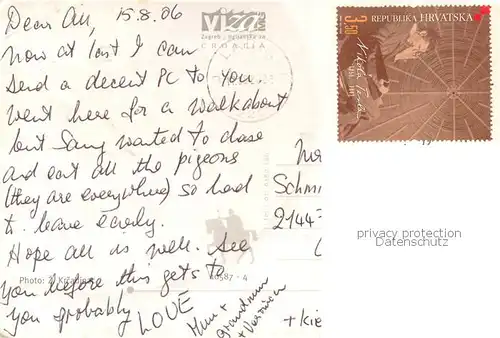 15.8.06
Dear All,
now at last I can
send a decent PC to you.
Went here for a walkabout
but Sany wanted to chase
and eat all the pigeons
(they are everywhere) so had
to leave early.
Hope all is well. See
you before this gets to
you probably
LOVE
Mum +
Grandmum
+ Veronica
viza
Zagreb
CROATIA
Photo:
46587 - 4
Schmi
2144
+ Kie
3.50
REPUBLIKA HRVATSKA
Nikola Tesla
privacy protection
Datenschutz